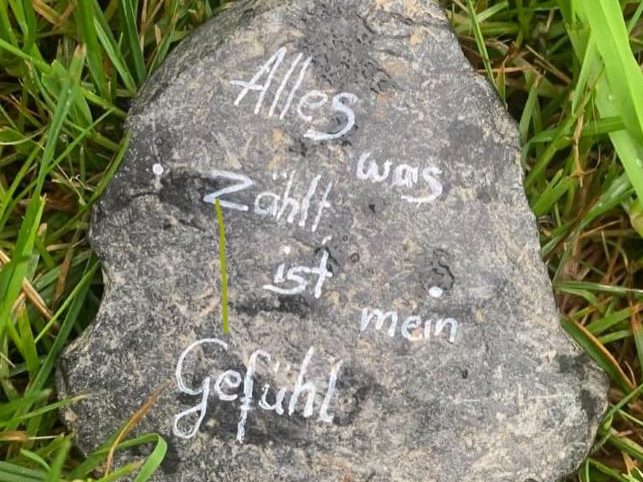 Alles
was
Zählt
ist
mein
Gefühl